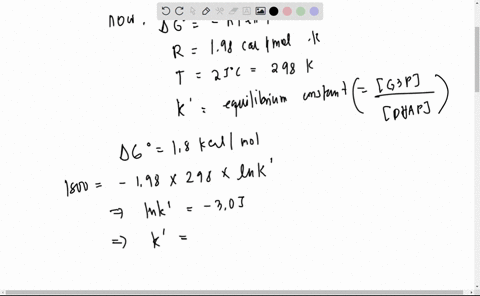 now. ΔG° = - RT ln K'
R = 1.98 cal/mol .K
T = 25°C = 298 K
K' = equilibrium constant (= [G3P] / [DHAP])
ΔG° = 1.8 kcal/mol
1800 = - 1.98 × 298 × ln K'
⇒ ln K' = -3.05
⇒ K' =